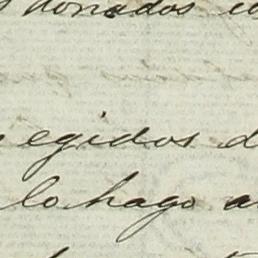 donados
egidos d
lo hago a